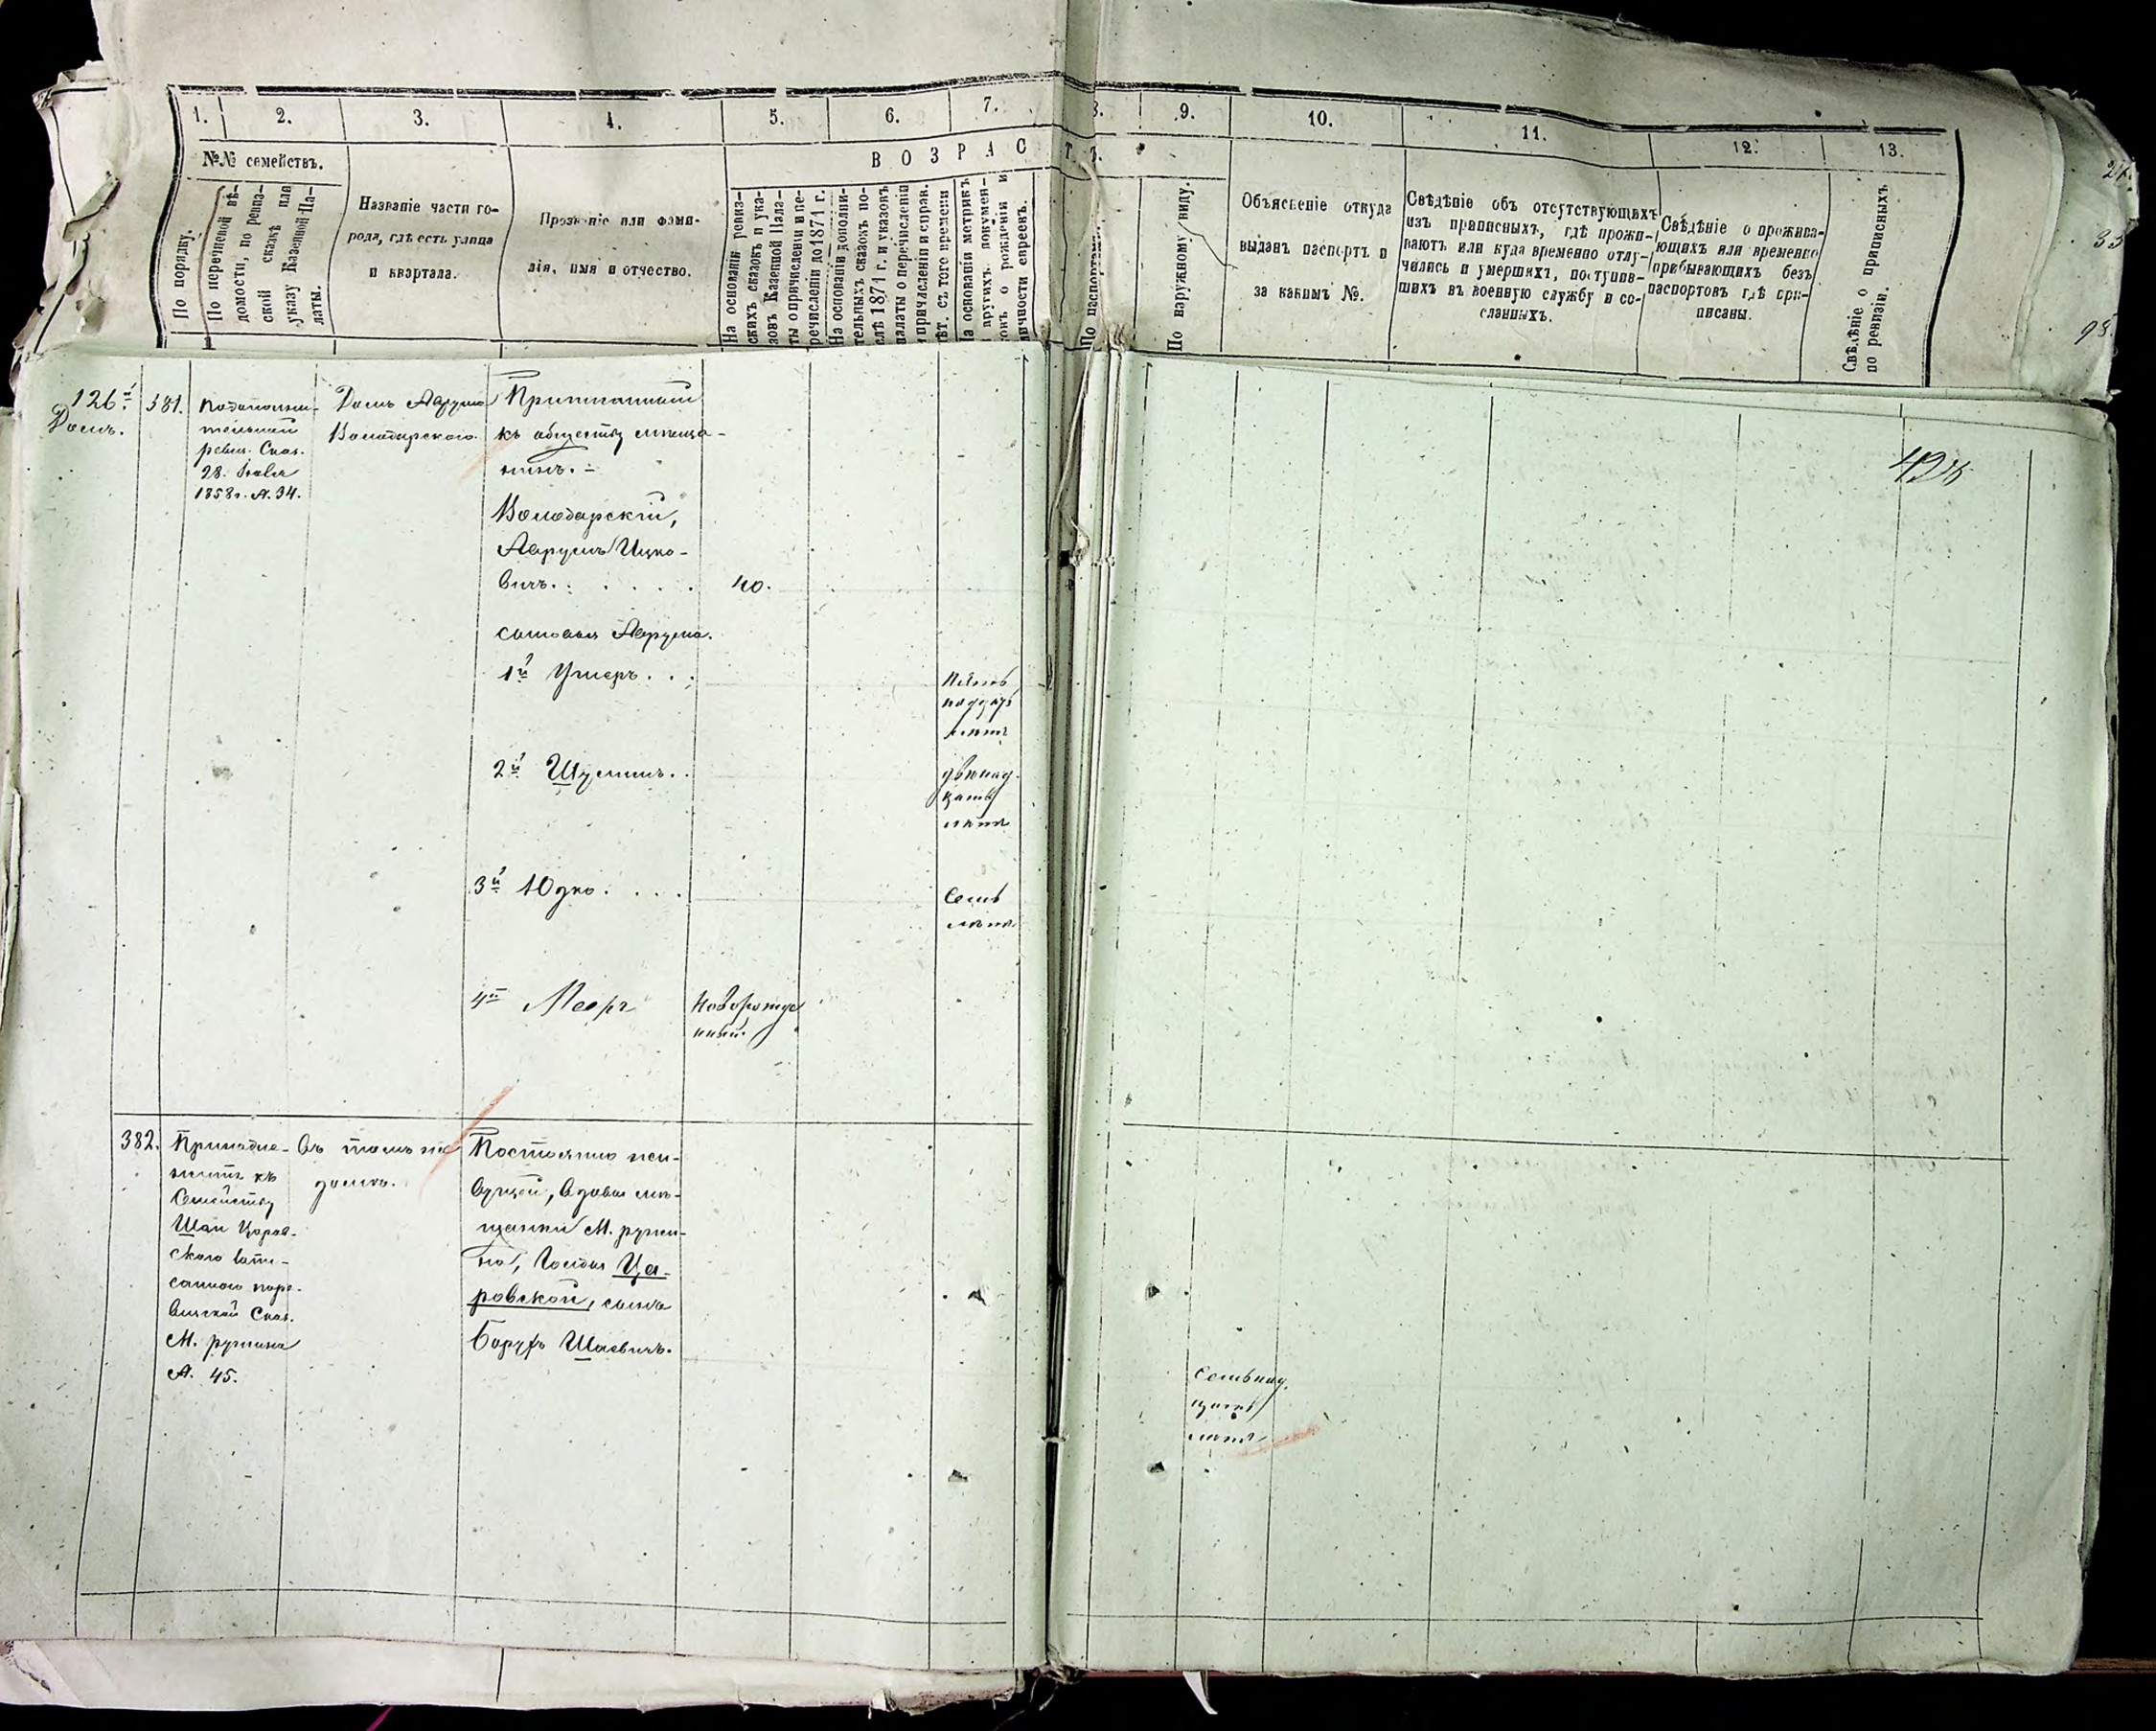 1. 2. 3. 4. 5. 6. 7. 8. 9. 10. 11. 12. 13.
№№ семействъ.
По порядку.
По перечневой вѣ-
домости, по ревиз-
ской сказкѣ или
указу Казенной Па-
латы.
Названіе части го-
рода, гдѣ есть улица
и квартала.
Прозваніе или фами-
лія, имя и отчество.
ВОЗРАСТЪ.
На основаніи ревиз-
скихъ сказокъ и ука-
зовъ Казенной Пала-
ты о причисленіи и пе-
речисленіи до 1871 г.
На основаніи дополни-
тельныхъ сказокъ по-
слѣ 1871 г. и указовъ
палаты о перечисленіи
и причисленіи и справ.
лѣт. съ того времени
На основаніи метрикъ
и другихъ докумен-
товъ о рожденіи и
личности евреевъ.
По паспортамъ.
По наружному виду.
Объясненіе откуда
выданъ паспортъ и
за какимъ №.
Свѣдѣніе объ отсутствующихъ
изъ приписныхъ, гдѣ прожи-
ваютъ или куда временно отлу-
чились и умершихъ, поступив-
шихъ въ военную службу и со-
сланныхъ.
Свѣдѣніе о прожива-
ющихъ или временно
прибывающихъ безъ
паспортовъ гдѣ при-
писаны.
Свѣдѣніе о приписныхъ
по ревизіи.
126й
Домъ.
381.
Подополни-
тельной
ревиз. Сказ.
28.
1858 г. №. 34.
Домъ Аврума
Володарскаго.
Приписанный
къ обществу мѣща-
нинъ.
Володарскій,
Аврумъ Ицко-
вичъ.
40.
сыновья Аврума.
1й
Пять
надцать
лѣтъ
2й
двѣнад-
цать
лѣтъ
3й Юдко
Семь
лѣтъ
4й Меерг
Новорожде
нный
382.
Принадле-
житъ къ
Семейству
Шаи Царов-
скаго запи-
саннаго поре-
визской Сказ.
М. ружина
№. 45.
Въ томъ же
домѣ.
Постоянно жи-
вущей, вдовы мѣ-
щанки М. ружи-
на, Ца-
ровской, сынъ
Борухъ Шаевичъ.
Семьнад.
цать
лѣтъ